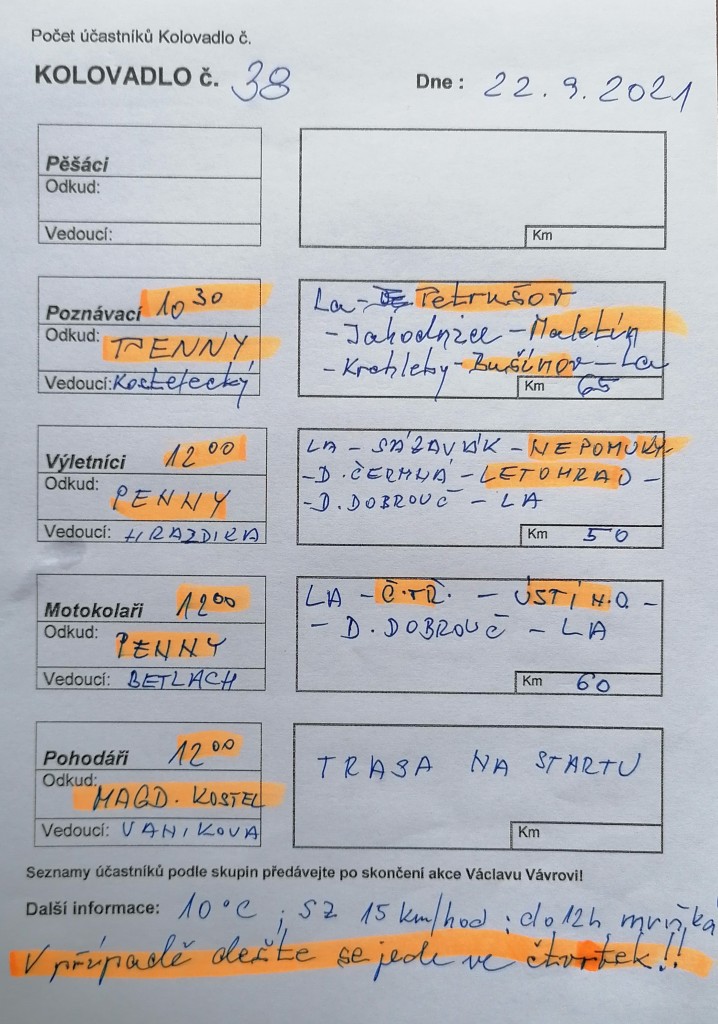 Počet účastníků Kolovadlo č.
KOLOVADLO č. 38 Dne : 22.9.2021
Pěšáci
Odkud:
Vedoucí:
Km
Poznávací 10 30
Odkud:
PENNY
Vedoucí: Kostelecký
La - Petrušov
- Jahodnice - Maletín
- Krchleby - Bušínov - La
Km 65
Výletníci 12 00
Odkud:
PENNY
Vedoucí: HRAZDIRA
LA - SÁZAVÁK - NEPOMUKY
- D. ČERMNÁ - LETOHRAD -
- D. DOBROUČ - LA
Km 50
Motokolaři 12 00
Odkud:
PENNY
Vedoucí: BETLACH
LA - Č.TŘ. - ÚSTÍ N.O. -
- D. DOBROUČ - LA
Km 60
Pohodáři 12 00
Odkud:
MAGD. KOSTEL
Vedoucí: VANIKOVA
TRASA NA STARTU
Km
Seznamy účastníků podle skupin předávejte po skončení akce Václavu Vávrovi!
Další informace: 10°C ; SZ 15 km/hod ; do 12h mrzká
V případě deště se jede ve čtvrtek!!